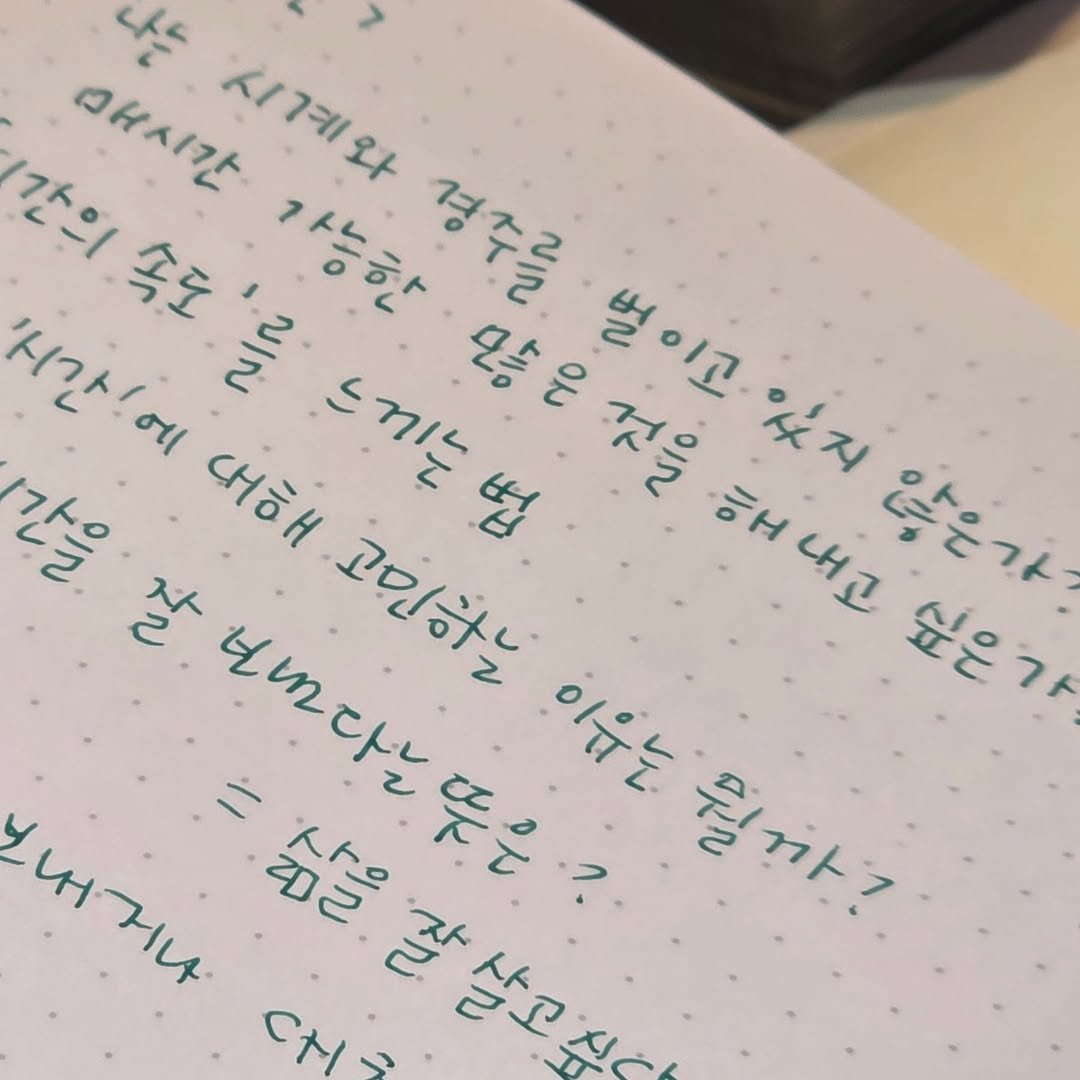 나는 시계와 경주를 벌이고 있지 않은가?
매시간 가능한 많은 것을 해내고 싶은가
시간의 속도'를 느끼는 법
'시간'에 대해 고민하는 이유는 뭘까?
시간을 잘 보낸다는 뜻은?
= 삶을 잘 살고싶다
보내거나